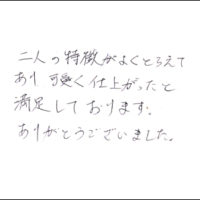 二人の特徴がよくとらえて
あり 可愛く仕上がったと
満足しております。
ありがとうございました。